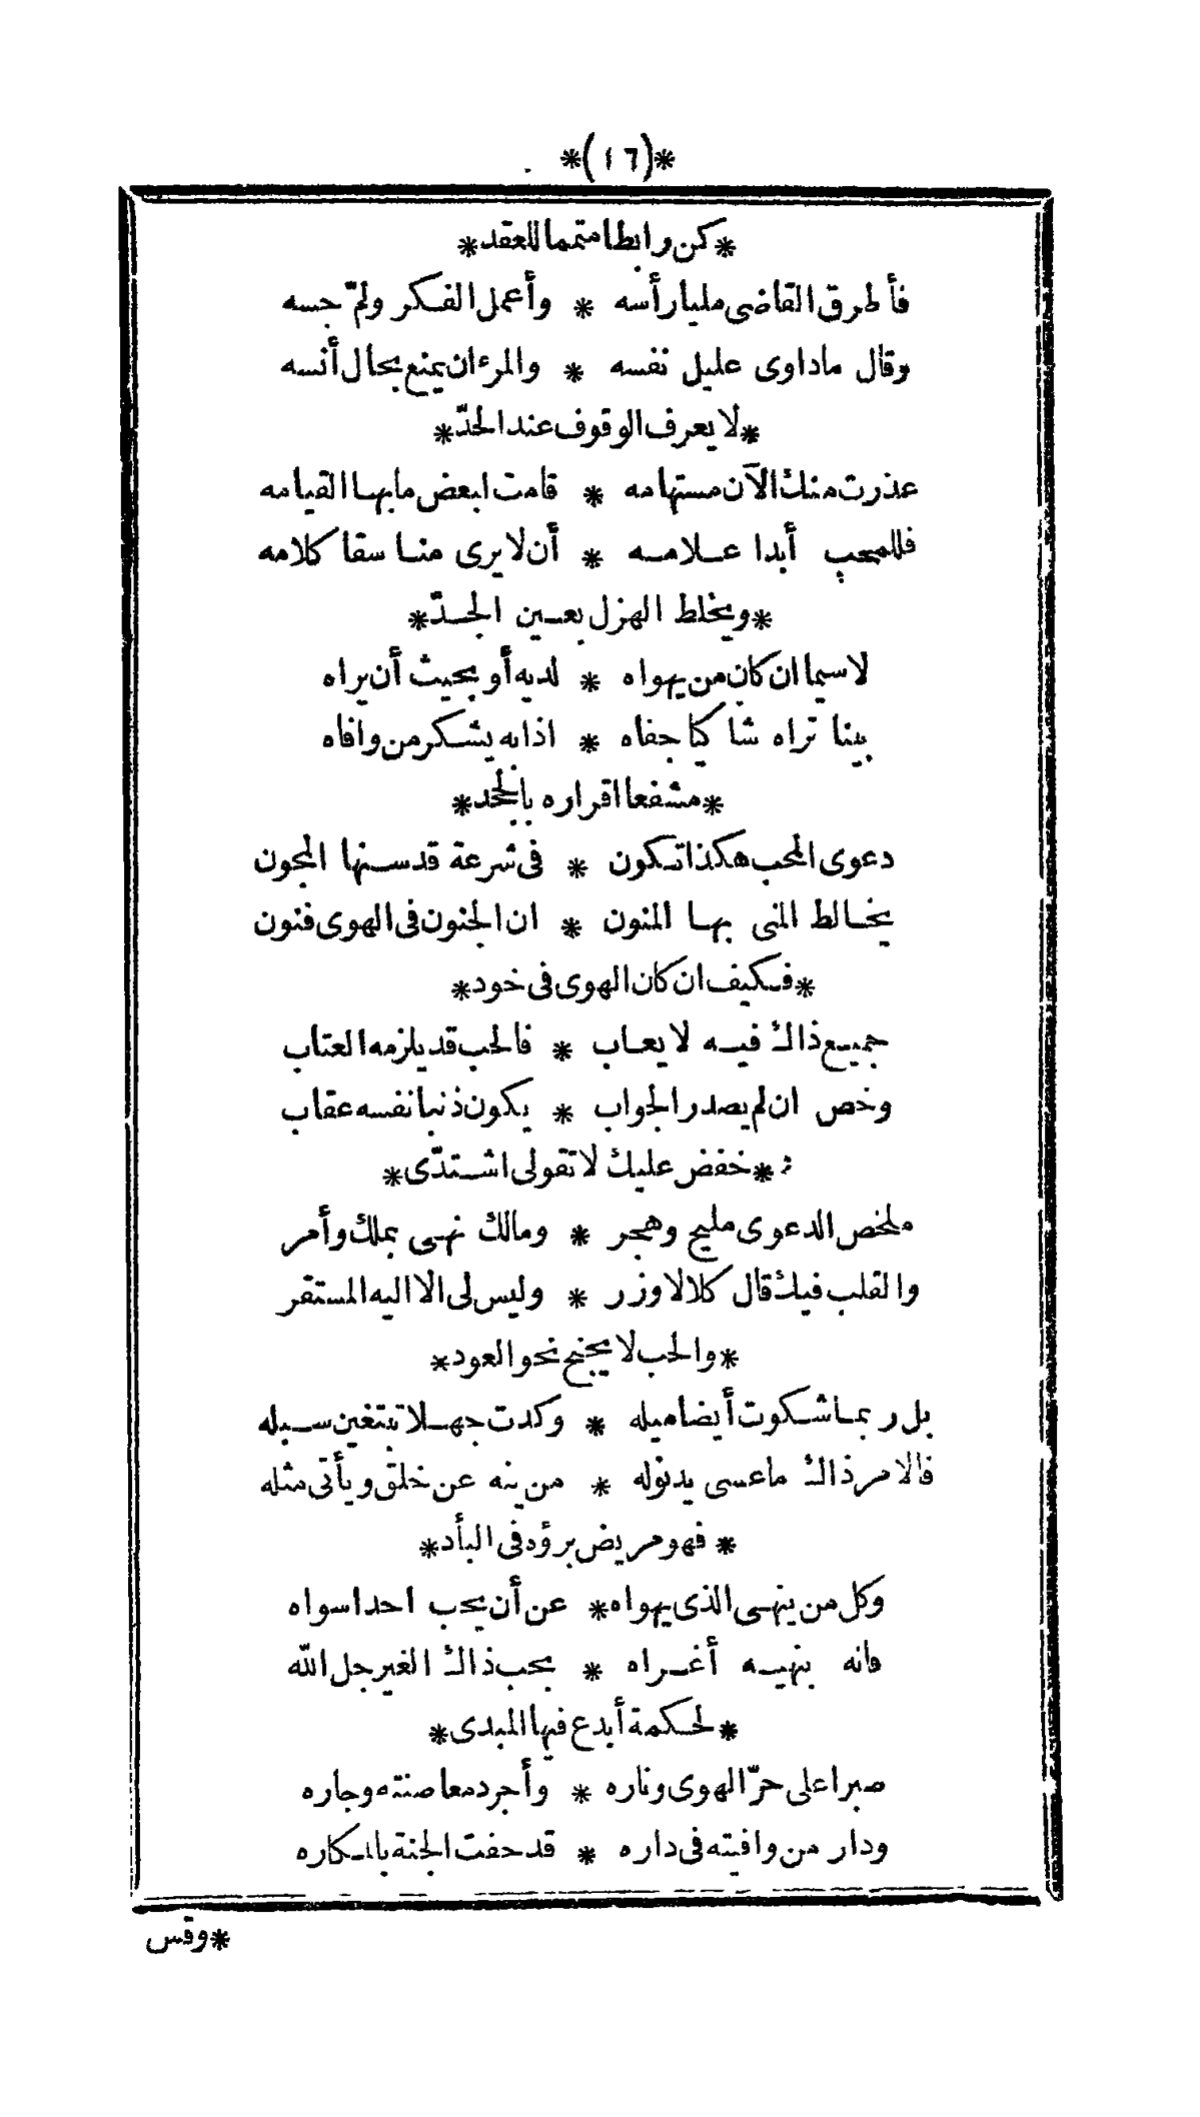 *(١٦)*
*كن رابطا متمما للعقد*
فأطرق القاضى مليا رأسه * وأعمل الفكر ولمّ حسه
وقال ماداوى عليل نفسه * والمرء ان يمنع بحال أنسه
*لا يعرف الوقوف عند الحدّ*
عذرت منك الآن مستهامه * قامت لبعض مابها القيامه
فللمحب أبدا علامه * أن لا يرى مناسقا كلامه
*ويخلط الهزل بعين الجدّ*
لاسيما ان كان من يهواه * لديه أو بحيث أن يراه
بينا تراه شاكيا جفاه * اذا به يشكر من وافاه
*مشفعا اقراره بالجحد*
دعوى المحب هكذا تكون * فى شرعة قد سنها المجون
يخالط المنى بها المنون * ان الجنون فى الهوى فنون
*فكيف ان كان الهوى فى خود*
جميع ذاك فيه لا يعاب * فالحب قد يلزمه العتاب
وخص ان لم يصدر الجواب * يكون ذنبا نفسه عقاب
*خفض عليك لا تقولى اشتدّى*
ملخص الدعوى مليح وهجر * ومالك نهى بملك وأمر
والقلب فيك قال كلا لا وزر * وليس لى الا اليه المستقر
*والحب لا يجنح نحو العود*
بل ربما شكوت أيضا ميله * وكدت جهلا تبتغين سبله
فالامر ذاك ماعسى يدنوله * من ينه عن خلق ويأتى مثله
* فهو مريض برؤه فى البأد*
وكل من ينهى الذى يهواه* عن أن يحب احدا سواه
فانه بنهيه أغراه * بحب ذاك الغير جل الله
*لحكمة أبدع فيها المبدى*
صبرا على حرّ الهوى وناره * وأجر دمعا صنته وجاره
ودار من وافيته فى داره * قد حفت الجنة بالمكاره
*وقس